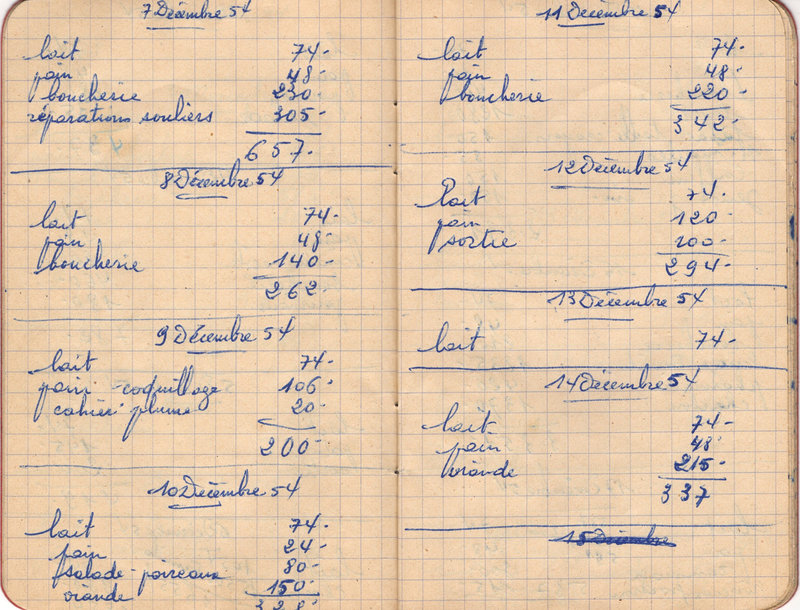 7 Décembre 54
lait 74-
pain 48-
boucherie 230-
réparations souliers 305-
657-
8 Décembre 54
lait 74-
pain 48-
boucherie 140-
262-
9 Décembre 54
lait 74-
pain - coquillage 106-
cahier plume 20-
200-
10 Décembre 54
lait 74-
pain 24-
salade - poireaux 80-
viande 150-
328-
11 Décembre 54
lait 74-
pain 48-
boucherie 220-
342-
12 Décembre 54
lait 74-
pain 120-
sortie 100-
294-
13 Décembre 54
lait 74-
14 Décembre 54
lait 74-
pain 48-
viande 215-
337
15 Décembre